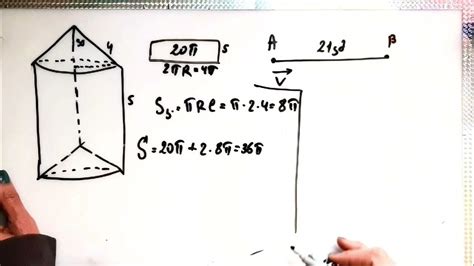 30 4 5
20π 5
2πR=4π
Sδ.=πRl=π·2·4=8π
S=20π+2·8π=36π
A B
V